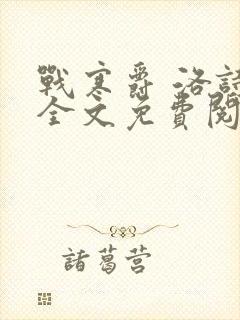 戰寒爵 洛詩
全文免費閱
諸葛营